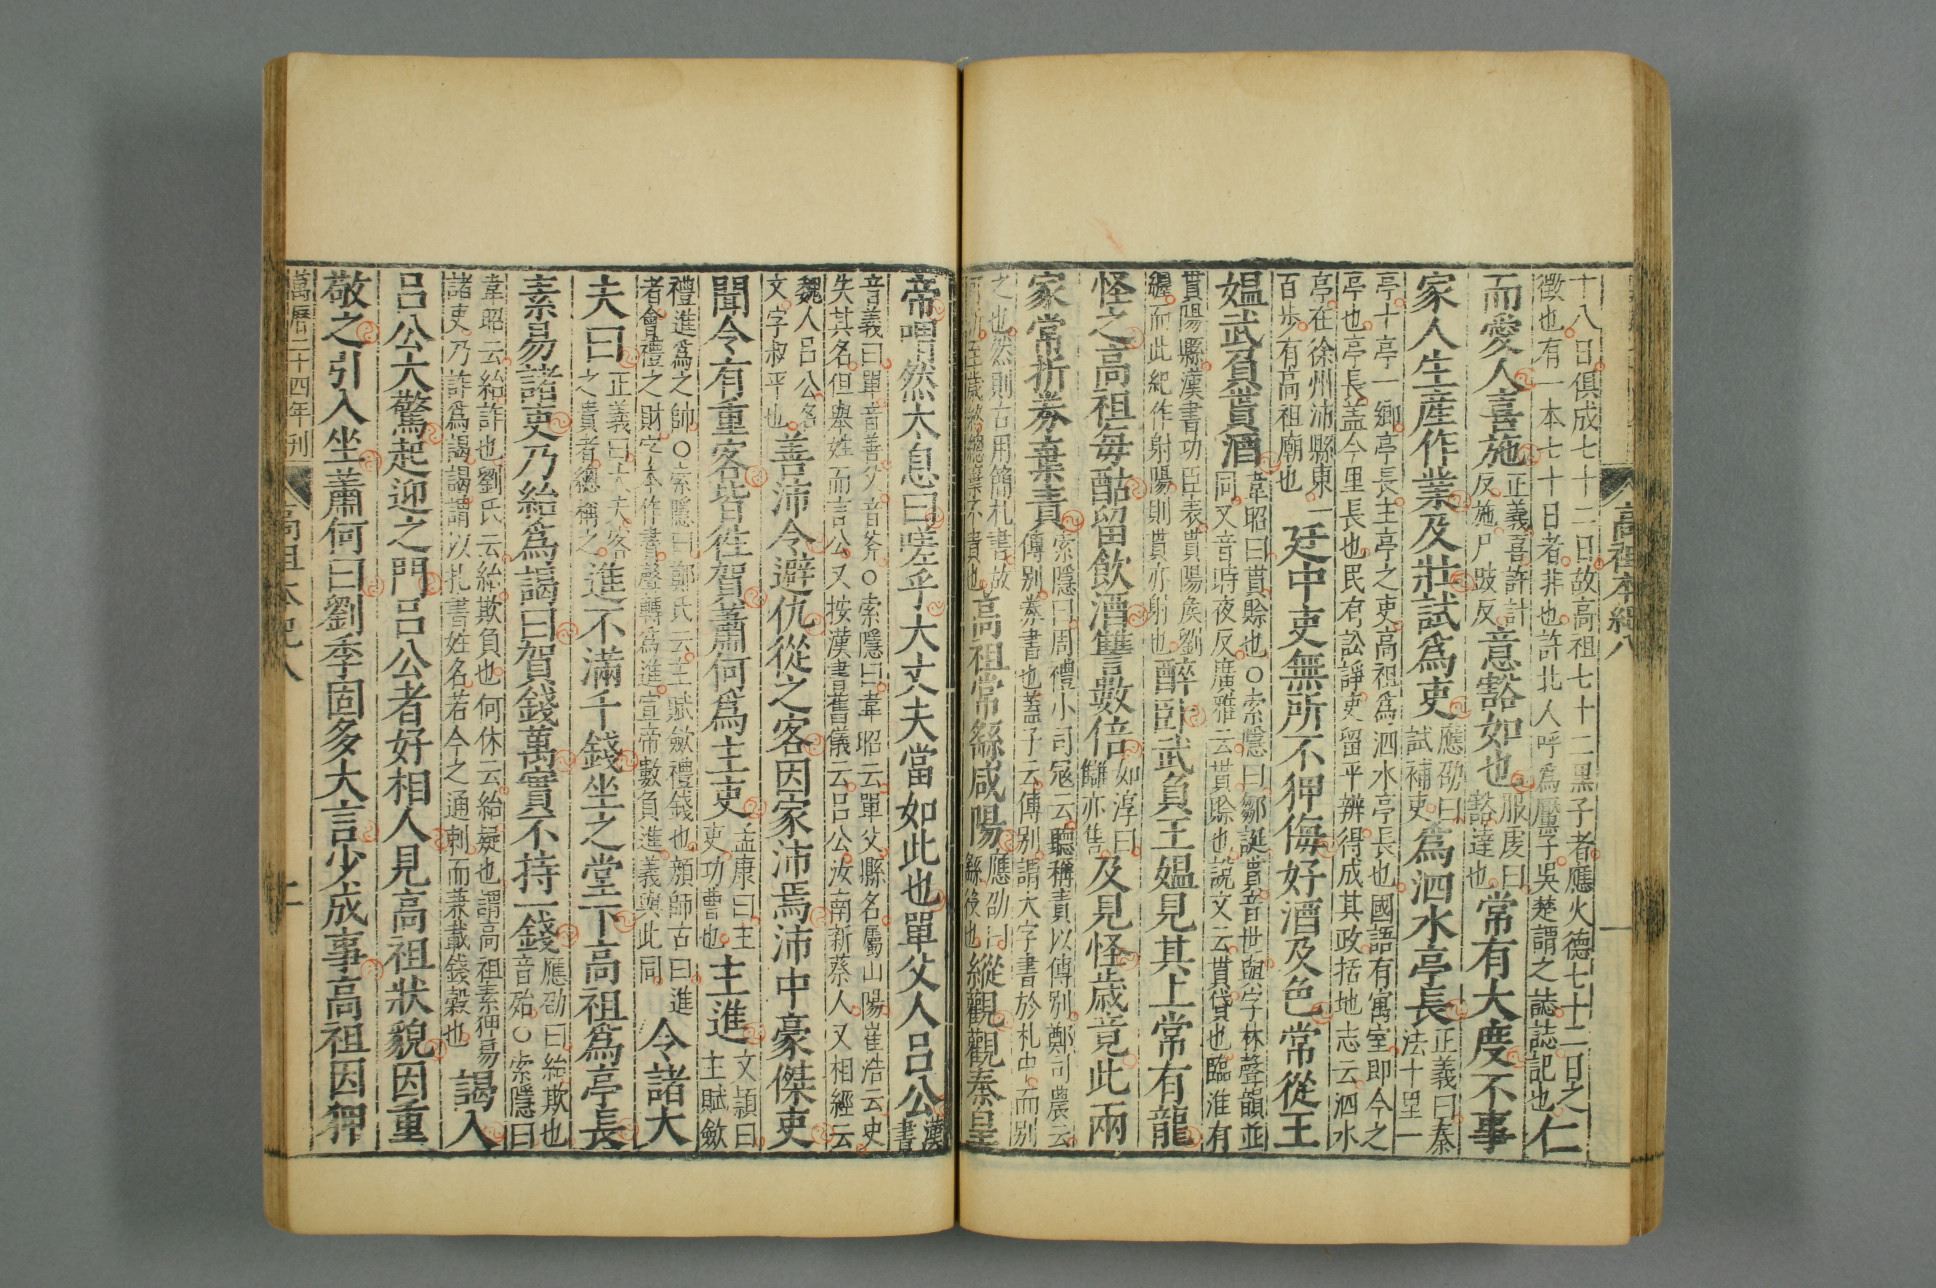 高祖本紀八
一
十八日俱成七十二日故高祖七十二黑子者應火德七十二日之
徵也有一本七十日者非也許北人呼爲黶子吳楚謂之誌誌記也
仁
而愛人喜施
正義喜許計
反施尸豉反
意豁如也
服虔曰
豁達也
常有大度不事
家人生產作業及壯試爲吏
應劭曰
試補吏
爲泗水亭長
正義曰秦
法十里一
亭十亭一鄉亭長主亭之吏高祖爲泗水亭長也國語有寓室即今之
亭也亭長蓋今里長也民有訟諍吏留平辨得成其政括地志云泗水
亭在徐州沛縣東一
百步有高祖廟也
廷中吏無所不狎侮好酒及色常從王
媼武負貰酒
韋昭曰貰賒也○索隱曰鄒誕貰音世與字林聲韻並
同又音時夜反廣雅云貰賒也說文云貰貸也臨淮有
貰陽縣漢書功臣表貰陽侯劉
纏而此紀作射陽則貰亦射也
醉卧武負王媼見其上常有龍
怪之高祖每酤留飲酒讐數倍
如淳曰
讎亦售
及見怪歲竟此兩
家常折券棄責
索隱曰周禮小司寇云聽稱責以傅別鄭司農云
傅別券書也蓋子云傅別謂大字書於札中而別
之也然則古用簡札書故
可折至歲終總棄不責也
高祖常繇咸陽
應劭曰
繇役也
縱觀觀秦皇
帝喟然大息曰嗟乎大丈夫當如此也單父人吕公
漢
書
音義曰單音善父音斧○索隱曰韋昭云單父縣名屬山陽崔浩云史
失其名但舉姓而言公又按漢書舊儀云吕公汝南新蔡人又相經云
魏人吕公名
文字叔平也
善沛令避仇從之客因家沛焉沛中豪傑吏
聞令有重客皆往賀蕭何爲主吏
孟康曰主
吏功曹也
主進
文頴曰
主賦斂
禮進爲之帥○索隱曰鄭氏云主賦斂禮錢也顔師古曰進
者會禮之財字本作賮聲轉爲進宣帝數負進義與此同
令諸大
夫曰
正義曰大夫客
之貴者總稱之
進不滿千錢坐之堂下高祖爲亭長
素易諸吏乃紿爲謁曰賀錢萬實不持一錢
應劭曰紿欺也
音殆○索隱曰
韋昭云紿詐也劉氏云紿欺負也何休云紿疑也謂高祖素狎易
諸吏乃詐爲謁謁謂以札書姓名若今之通刺而兼載錢穀也
謁入
吕公大驚起迎之門吕公者好相人見高祖狀貌因重
敬之引入坐蕭何曰劉季固多大言少成事高祖因狎
萬曆二十四年刊
高祖本紀八
二